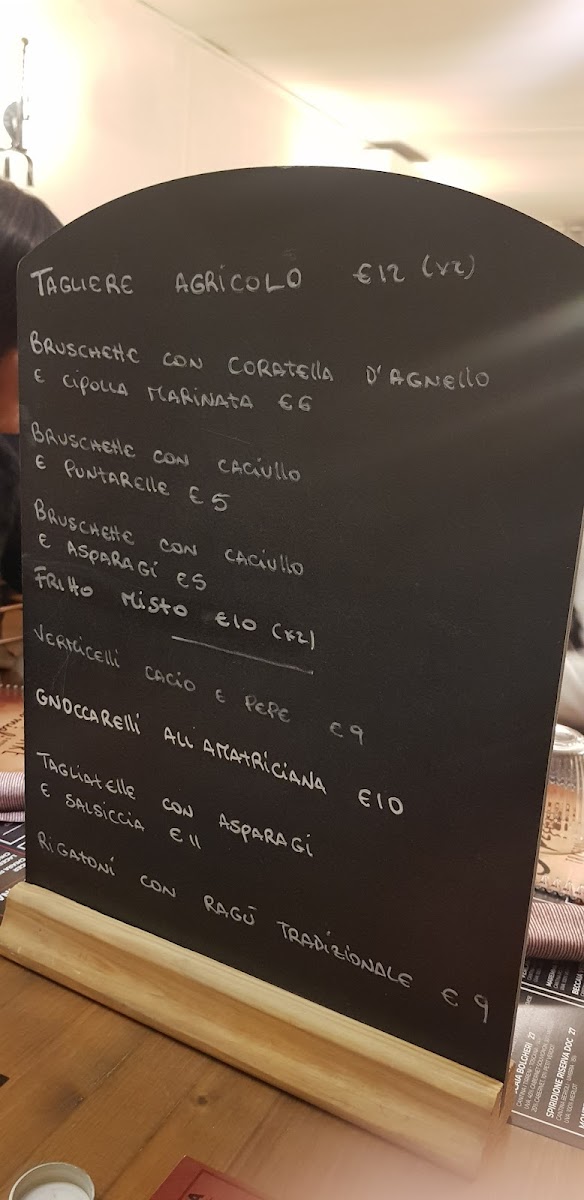 TAGLIERE AGRICOLO €12 (x2)
BRUSCHETTE CON CORATELLA D'AGNELLO
E CIPOLLA MARINATA €6
BRUSCHETTE CON CACIULLO
E PUNTARELLE €5
BRUSCHETTE CON CACIULLO
E ASPARAGI €5
FRITTO MISTO €10 (x2)
VERMICELLI CACIO E PEPE €9
GNOCCARELLI ALL'AMATRICIANA €10
TAGLIATELLE CON ASPARAGI
E SALSICCIA €11
RIGATONI CON RAGÙ TRADIZIONALE €9
BOLGHERI 27
SPIRIDIONE RISERVA DOC 27